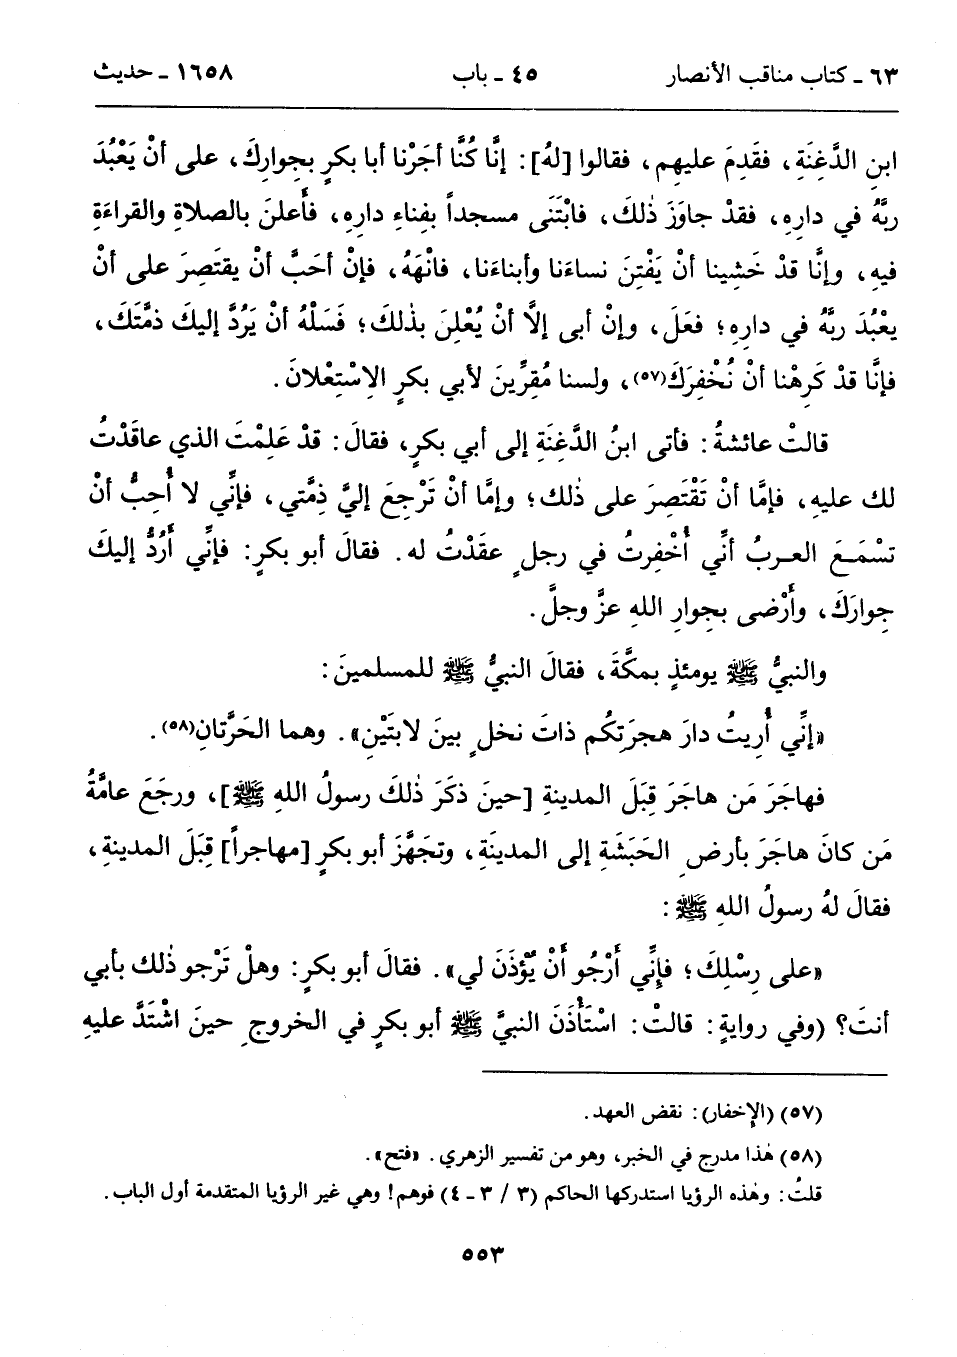 ٦٣ ـ كتاب مناقب الأنصار ٤٥ ـ باب ١٦٥٨ ـ حديث
ابنِ الدَّغِنَةِ، فقَدِمَ عليهِم، فقالوا [لهُ]: إنَّا كُنَّا أجَرْنا أبا بكرٍ بجِوارِكَ، على أنْ يَعْبُدَ
ربَّهُ في دارِهِ، فقدْ جاوَزَ ذٰلكَ، فابْتَنَى مسجداً بفِناءِ دارِهِ، فأَعلنَ بالصلاةِ والقراءَةِ
فيهِ، وإنَّا قدْ خَشِينا أنْ يَفْتِنَ نساءَنا وأبناءَنا، فانْهَهُ، فإنْ أحَبَّ أنْ يقتَصِرَ على أنْ
يعْبُدَ ربَّهُ في دارِهِ؛ فعَلَ، وإنْ أبى إلاَّ أنْ يُعْلِنَ بذٰلكَ؛ فَسَلْهُ أنْ يَرُدَّ إليكَ ذمَّتَكَ،
فإنَّا قدْ كَرِهْنا أنْ نُخْفِرَكَ(٥٧)، ولسنا مُقِرِّينَ لأبي بكرٍ الاِسْتِعْلانَ.
قالتْ عائشةُ: فأتى ابنُ الدَّغِنَةِ إلى أبي بكرٍ، فقالَ: قدْ عَلِمْتَ الذي عاقَدْتُ
لك عليهِ، فإمَّا أنْ تَقْتَصِرَ على ذٰلك؛ وإمَّا أنْ تَرْجِعَ إليَّ ذِمَّتي، فإنِّي لا أُحِبُّ أنْ
تسْمَـعَ العـربُ أنِّي أُخْفِرتُ في رجلٍ عقَدْتُ له. فقالَ أبو بكرٍ: فإنِّي أَرُدُّ إليكَ
جِوارَكَ، وأَرْضى بجِوارِ اللهِ عزَّ وجلَّ.
والنبيُّ ﷺ يومئذٍ بمكَّةَ، فقالَ النبيُّ ﷺ للمسلمينَ:
«إنِّي أُريتُ دارَ هجرَتِكُم ذاتَ نخلٍ بينَ لابتَيْنِ». وهما الحَرَّتانِ(٥٨).
فهاجَرَ مَن هاجَرَ قِبَلَ المدينةِ [حينَ ذكَرَ ذٰلكَ رسولُ اللهِ ﷺ]، ورجَعَ عامَّةُ
مَن كانَ هاجَرَ بأرضِ الحَبَشَةِ إلى المدينَةِ، وتجَهَّزَ أبو بكرٍ [مهاجراً] قِبَلَ المدينةِ،
فقالَ لهُ رسولُ اللهِ ﷺ:
«على رِسْلِكَ؛ فإنِّي أَرْجُو أَنْ يُؤذَنَ لي». فقالَ أبو بكرٍ: وهلْ تَرْجو ذٰلك بأبي
أنتَ؟ (وفي روايةٍ: قالتْ: اسْتَأْذَنَ النبيَّ ﷺ أبو بكرٍ في الخروجِ حينَ اشْتَدَّ عليهِ
(٥٧) (الإخفار): نقض العهد.
(٥٨) هٰذا مدرج في الخبر، وهو من تفسير الزهري. «فتح».
قلتُ: وهٰذه الرؤيا استدركها الحاكم (٣ / ٣ ـ ٤) فوهم! وهي غير الرؤيا المتقدمة أول الباب.
٥٥٣